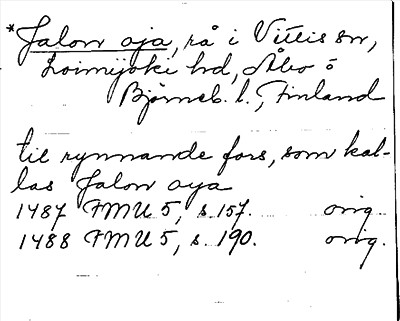 *Jalon oja, rå i Vittis sn,
Loimijoki hd, Åbo o
Björneb. l., Finland
til rynnande fors, som kal-
las Jalon oya
1487 FMU 5, s. 157. orig.
1488 FMU 5, s. 190. orig.